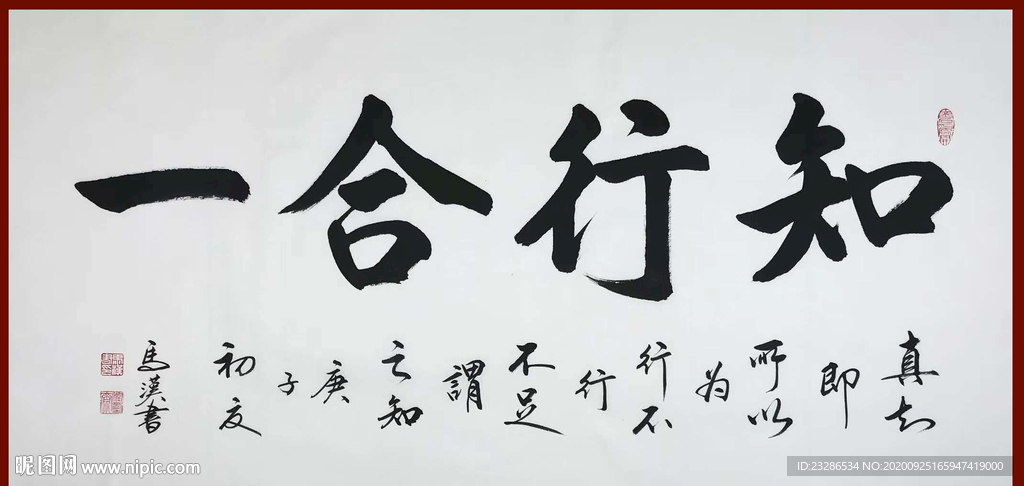 知行合一
真知
即
所以
为
行不
行
不足
謂
之知
庚
子
初夏
馬漢書
昵图网 www.nipic.com
ID:23286534 NO:20200925165947419000